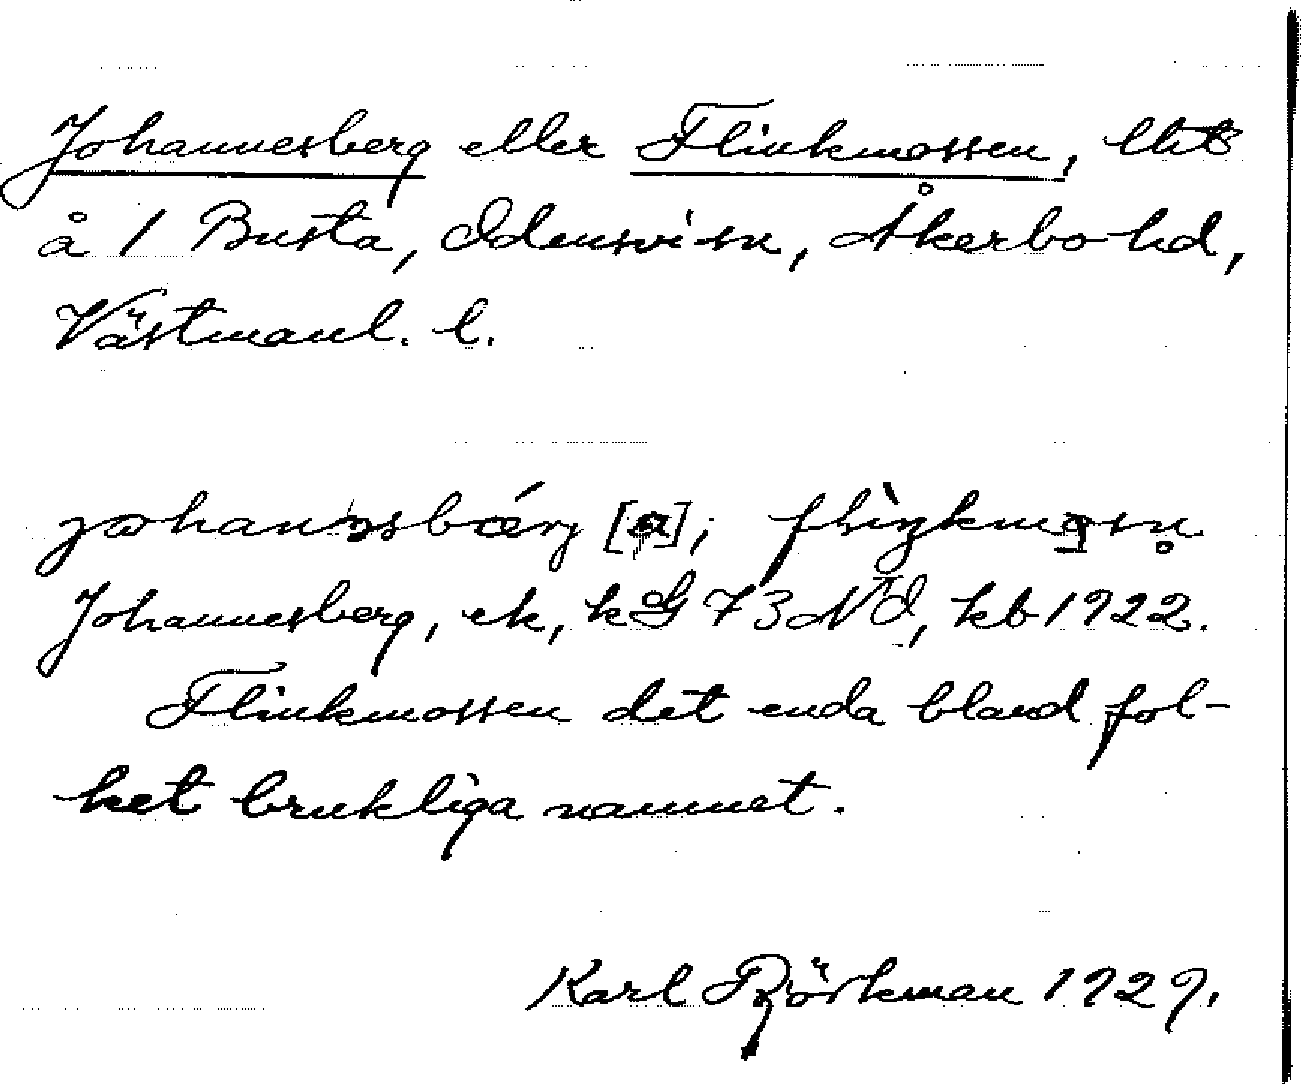 Johannesberg eller Flinkmossen, lht
å 1 Busta, Odensvi sn, Åkerbo hd,
Västmanl. l.
johannəsbærj [a], fliŋkmosn̥
Johannesberg, ek, kG 73 NO, kb 1922.
Flinkmossen det enda bland fol-
ket brukliga namnet.
Karl Björkman 1929.